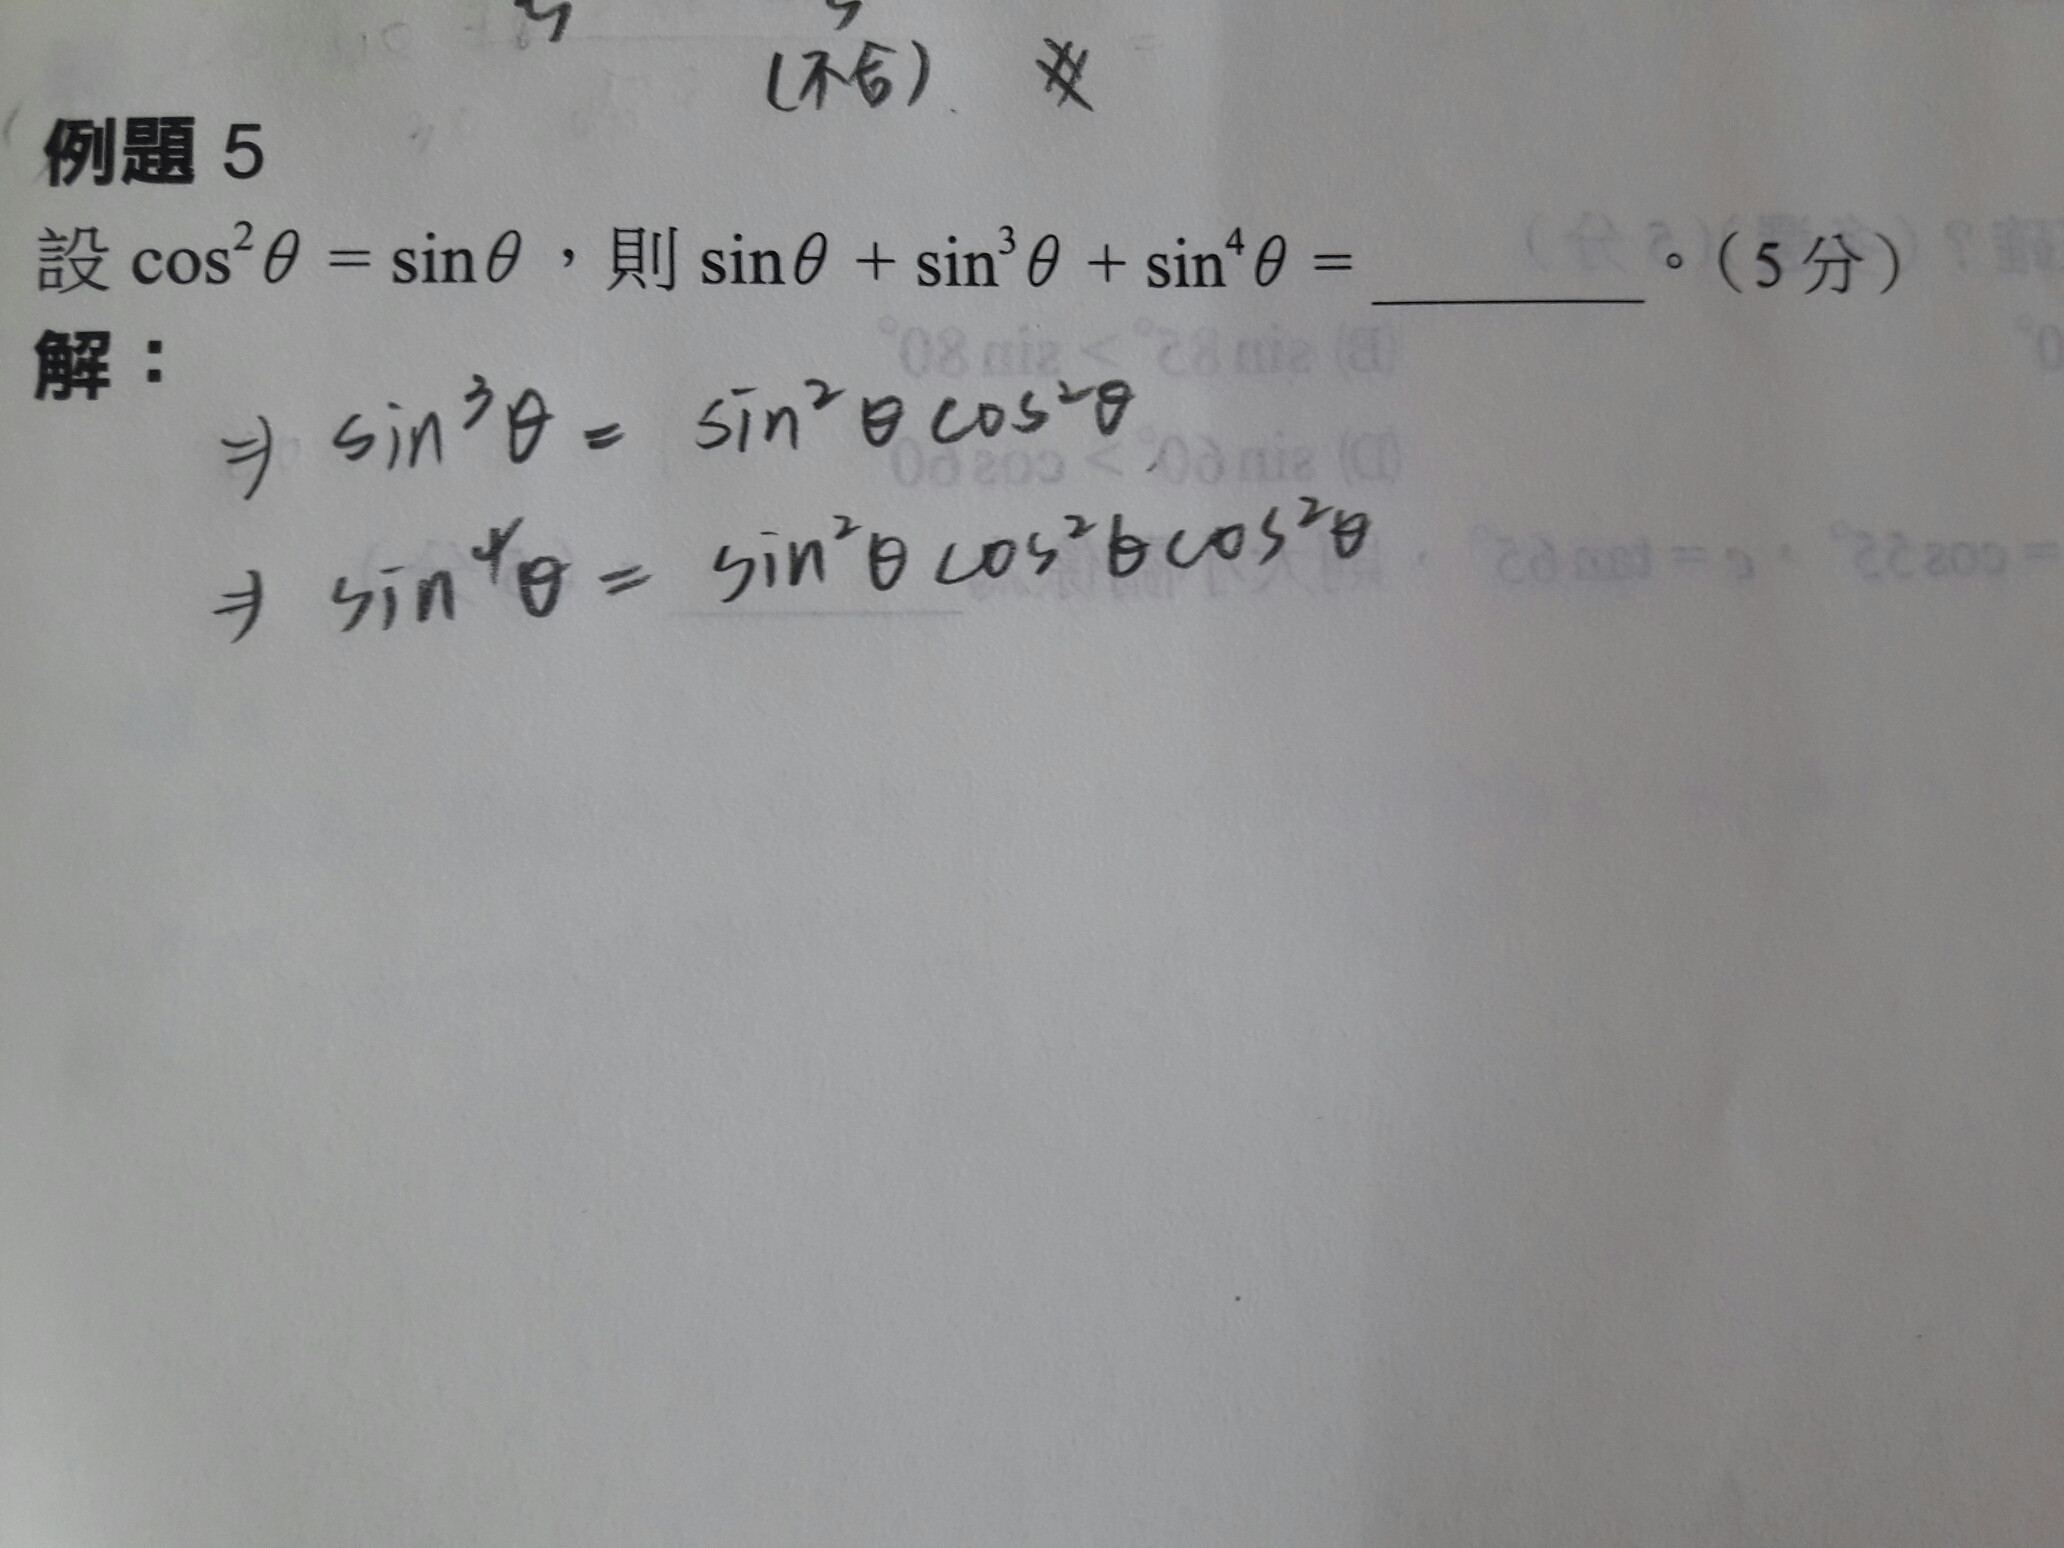 (不合)
例題 5
設 cos²θ = sinθ，則 sinθ + sin³θ + sin⁴θ = ________。(5 分)
解：
⇒ sin³θ = sin²θ cos²θ
⇒ sin⁴θ = sin²θ cos²θ cos²θ